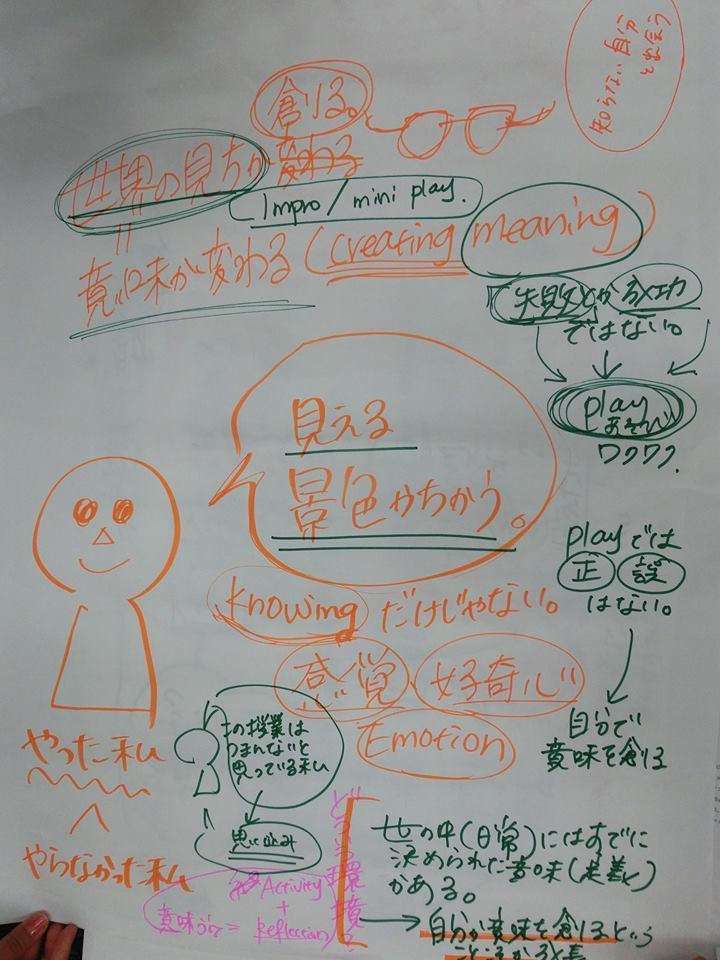 知らない自分
と出会う
創る。
世界の見ちか変わる
Impro/mini play.
意味が変わる(creating meaning)
失敗とか成功
ではない。
play
あそび
ワクワク.
見える
景色がちがう。
playでは
正 誤
はない。
自分で
意味を創る
knowing だけじゃない。
感覚、好奇心
Emotion
やった私
やらなかった私
この授業は
つまんないと
思っている私
思い込み
どういう環境?
Activity
+
意味づけ= Reflection
世の中(日常)にはすでに
決められた意味(定義)
がある。
→自分が意味を創るという